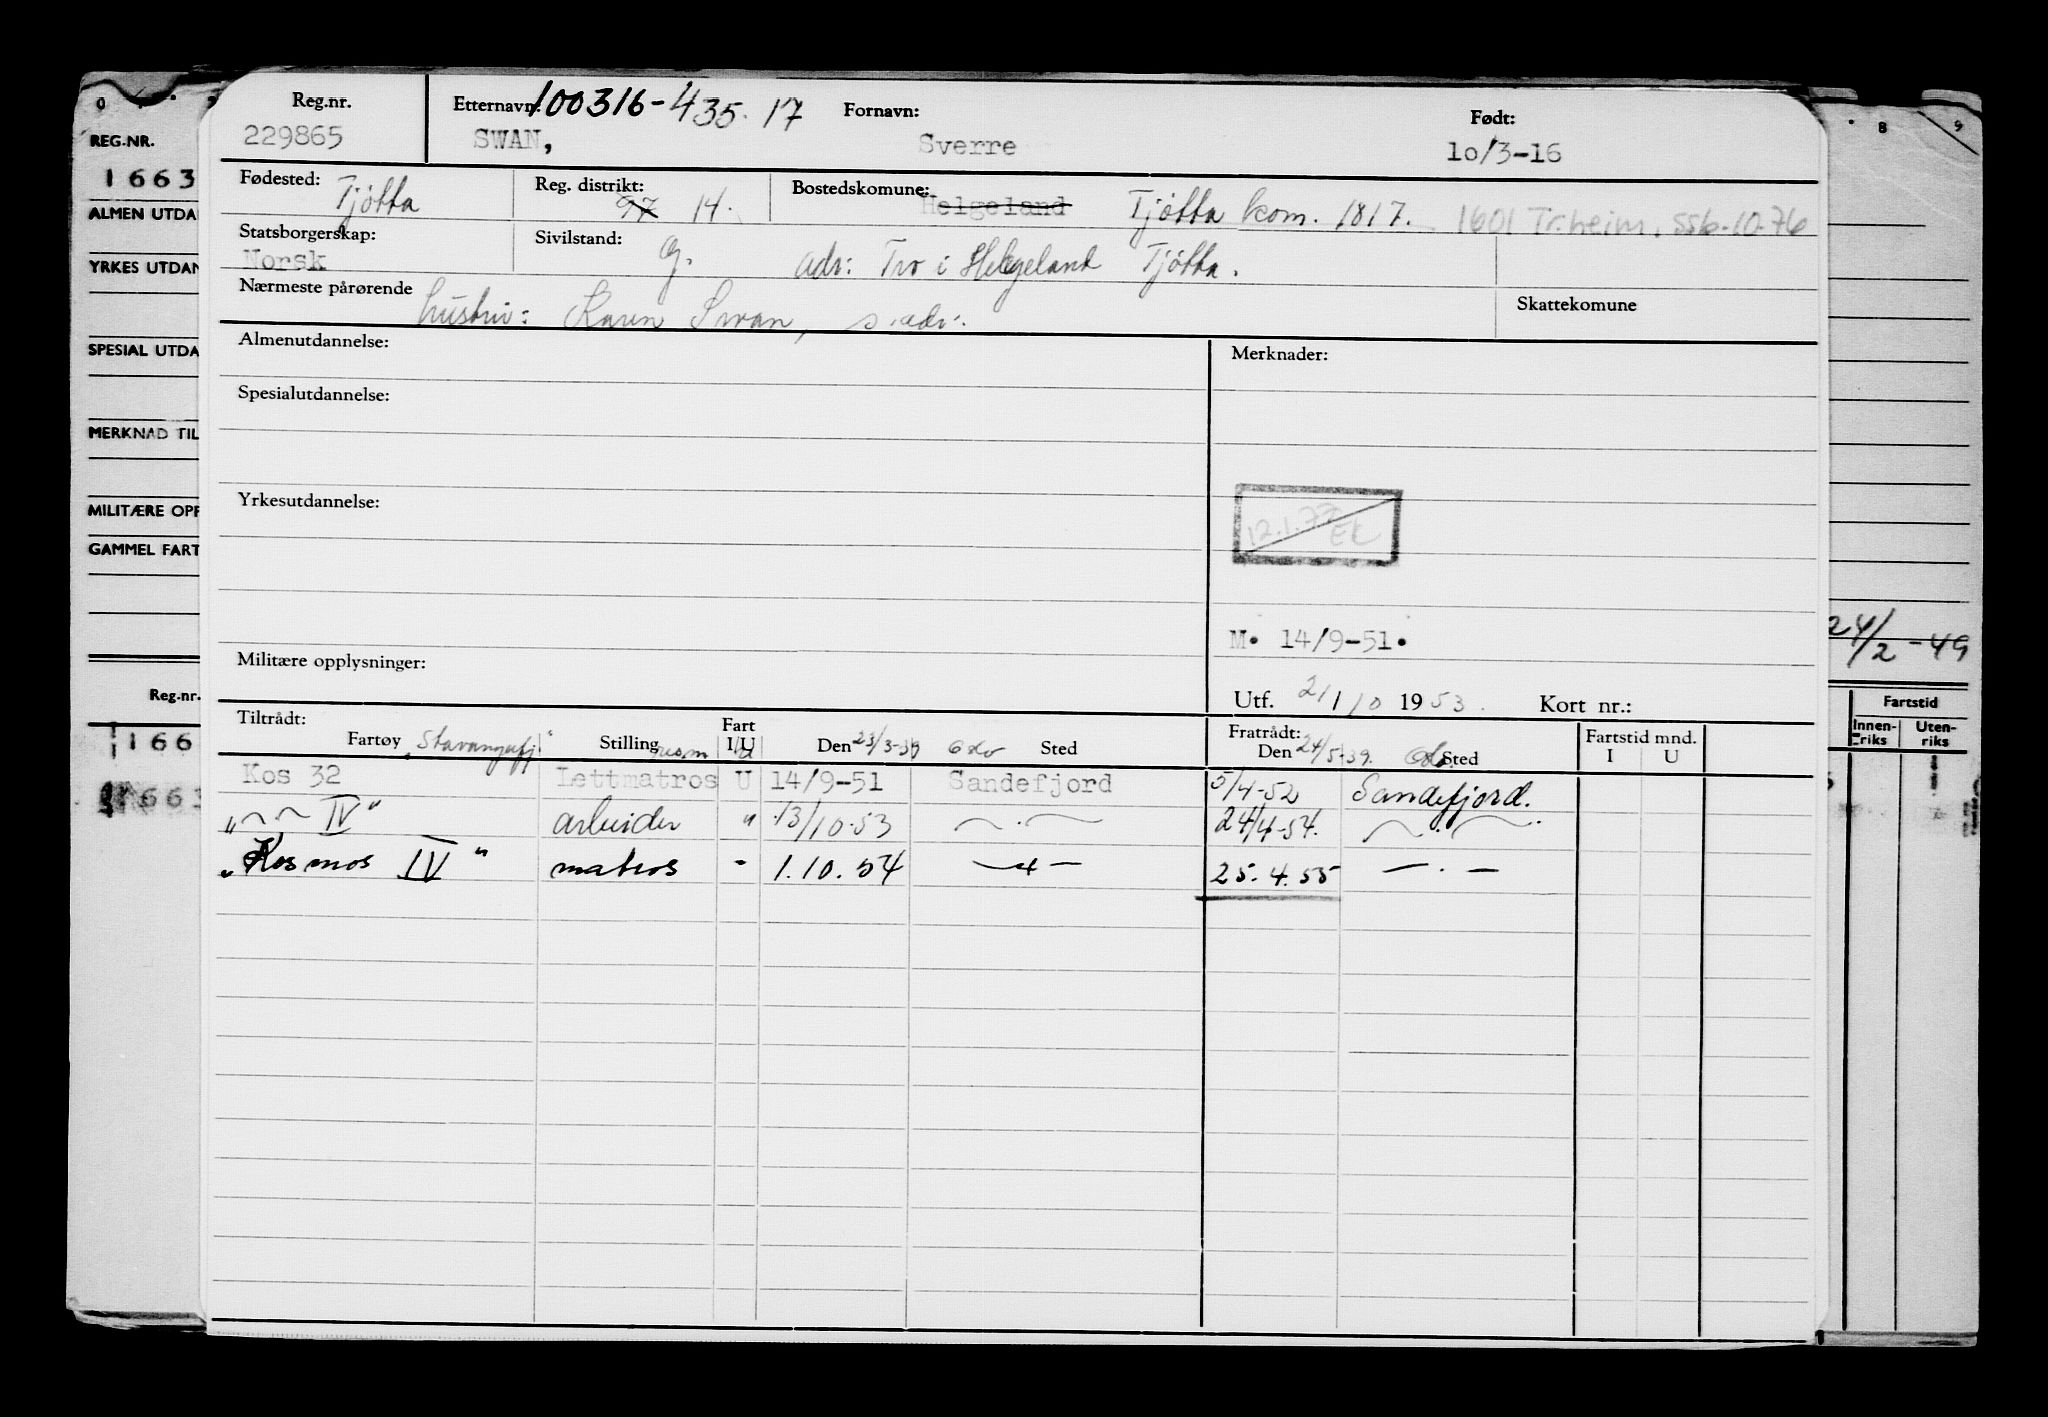 Reg.nr. Etternavn: 100316-435.17 Fornavn: Født:
229865 SWAN, Sverre 10/3-16
Fødested: Tjøtta Reg. distrikt: 97 14. Bostedskomune: Helgeland Tjøtta kom. 1817. 1601 Tr.heim. SSB-10-76
Statsborgerskap: Norsk Sivilstand: g. adr: Tro i Helgeland Tjøtta.
Nærmeste pårørende hustru: Karen Swan, s. adr. Skattekomune
Almenutdannelse: Merknader:
Spesialutdannelse:
Yrkesutdannelse:
12.1.77 EK
M. 14/9-51.
Militære opplysninger:
Utf. 21/10 1953. Kort nr.:
Tiltrådt: Fratrådt:
Fartøy Stilling Fart I/U Den Sted Den Sted Fartstid mnd. I U
"Stavangerfj." 23/3-39 Oslo 24/5-39. Oslo
Kos 32 Lettmatros U 14/9-51 Sandefjord 5/4-52 Sandefjord.
" ~ ~ IV" arbeider " 13/10-53 ~ . ~ 24/4-54. ~ . ~
"Kosmos IV" matros - 1.10.54 — " — 25.4.55 — . —
REG.NR.
1663
ALMEN UTDA
YRKES UTDAN
SPESIAL UTDA
MERKNAD TIL
MILITÆRE OPP
GAMMEL FART
Reg.nr.
166
663
8 9
24/2-49
Fartstid
Innen-riks Uten-riks